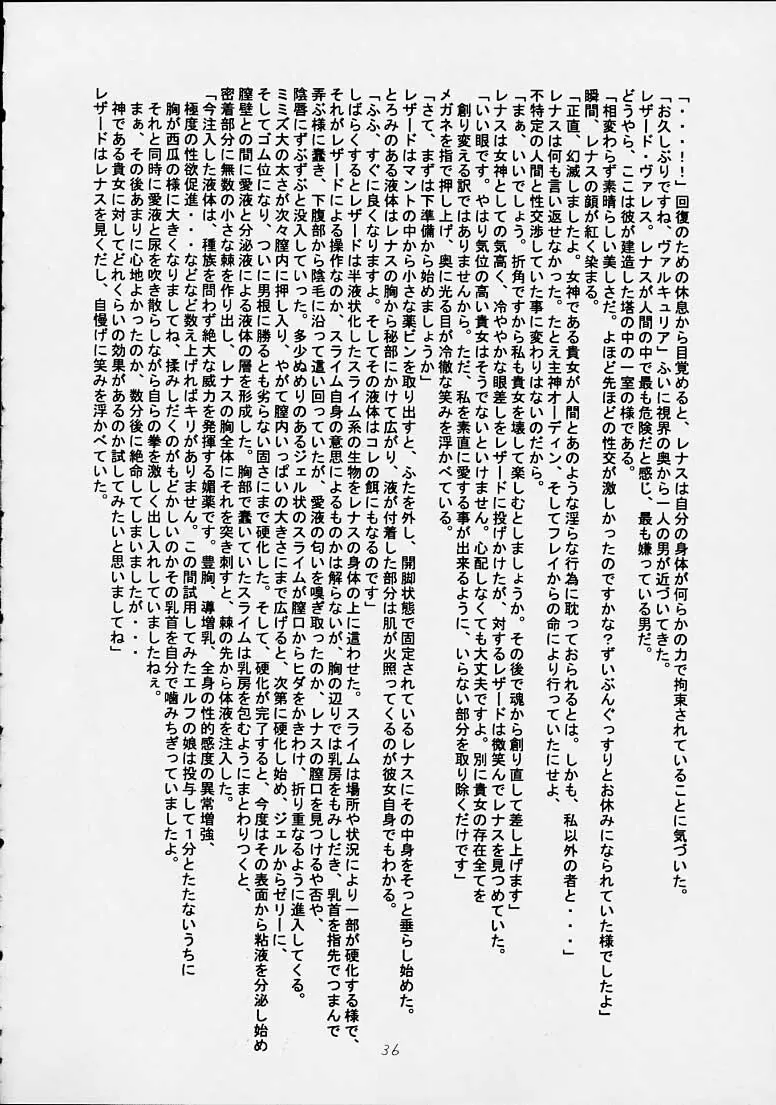 「・・・!!」回復のための休息から目覚めると、レナスは自分の身体が何らかの力で拘束されていることに気づいた。
「お久しぶりですね、ヴァルキュリア」ふいに視界の奥から一人の男が近づいてきた。
レザード・ヴァレス。レナスが人間の中で最も危険だと感じ、最も嫌っている男だ。
どうやら、ここは彼が建造した塔の中の一室の様である。
「相変わらず素晴らしい美しさだ。よほど先ほどの性交が激しかったのですかな?ずいぶんぐっすりとお休みになられていた様でしたよ」
瞬間、レナスの顔が紅く染まる。
「正直、幻滅しましたよ。女神である貴女が人間とあのような淫らな行為に耽っておられるとは。しかも、私以外の者と・・・」
レナスは何も言い返せなかった。たとえ主神オーディン、そしてフレイからの命により行っていたにせよ、
不特定の人間と性交渉していた事に変わりはないのだから。
「まぁ、いいでしょう。折角ですから私も貴女を壊して楽しむとしましょうか。その後で魂から創り直して差し上げます」
レナスは女神としての気高く、冷ややかな眼差しをレザードに投げかけたが、対するレザードは微笑んでレナスを見つめていた。
「いい眼です。やはり気位の高い貴女はそうでないといけません。心配しなくても大丈夫ですよ。別に貴女の存在全てを
創り変える訳ではありませんから。ただ、私を素直に愛する事が出来るように、いらない部分を取り除くだけです」
メガネを指で押し上げ、奥に光る目が冷徹な笑みを浮かべている。
「さて、まずは下準備から始めましょうか」
レザードはマントの中から小さな薬ビンを取り出すと、ふたを外し、開脚状態で固定されているレナスにその中身をそっと垂らし始めた。
とろみのある液体はレナスの胸から秘部にかけて広がり、液が付着した部分は肌が火照ってくるのが彼女自身でもわかる。
「ふふ、すぐに良くなりますよ。そしてその液体はコレの餌にもなるのです」
しばらくするとレザードは半液状化したスライム系の生物をレナスの身体の上に這わせた。スライムは場所や状況により一部が硬化する様で、
それがレザードによる操作なのか、スライム自身の意思によるものかは解らないが、胸の辺りでは乳房をもみしだき、乳首を指先でつまんで
弄ぶ様に蠢き、下腹部から陰毛に沿って這い回っていたが、愛液の匂いを嗅ぎ取ったのか、レナスの膣口を見つけるや否や、
陰唇にずぶずぶと没入していった。多少ぬめりのあるジェル状のスライムが膣口からヒダをかきわけ、折り重なるように進入してくる。
ミミズ大の太さが次々膣内に押し入り、やがて膣内いっぱいの大きさにまで広げると、次第に硬化し始め、ジェルからゼリーに、
そしてゴム位になり、ついに男根に勝るとも劣らない固さにまで硬化した。そして、硬化が完了すると、今度はその表面から粘液を分泌し始め
膣壁との間に愛液と分泌液による液体の層を形成した。胸部で蠢いていたスライムは乳房を包むようにまとわりつくと、
密着部分に無数の小さな棘を作り出し、レナスの胸全体にそれを突き刺すと、棘の先から体液を注入した。
「今注入した液体は、種族を問わず絶大な威力を発揮する媚薬です。豊胸、導増乳、全身の性的感度の異常増強、
極度の性欲促進・・・などなど数え上げればキリがありません。この間試用してみたエルフの娘は投与して1分とたたないうちに
胸が西瓜の様に大きくなりましてね、揉みしだくのがもどかしいのかその乳首を自分で噛みちぎっていましたよ。
それと同時に愛液と尿を吹き散らしながら自らの拳を激しく出し入れしていましたねぇ。
まぁ、その後あまりに心地よかったのか、数分後に絶命してしまいましたが・・・
神である貴女に対してどれくらいの効果があるのか試してみたいと思いましてね」
レザードはレナスを見くだし、自慢げに笑みを浮かべていた。
36